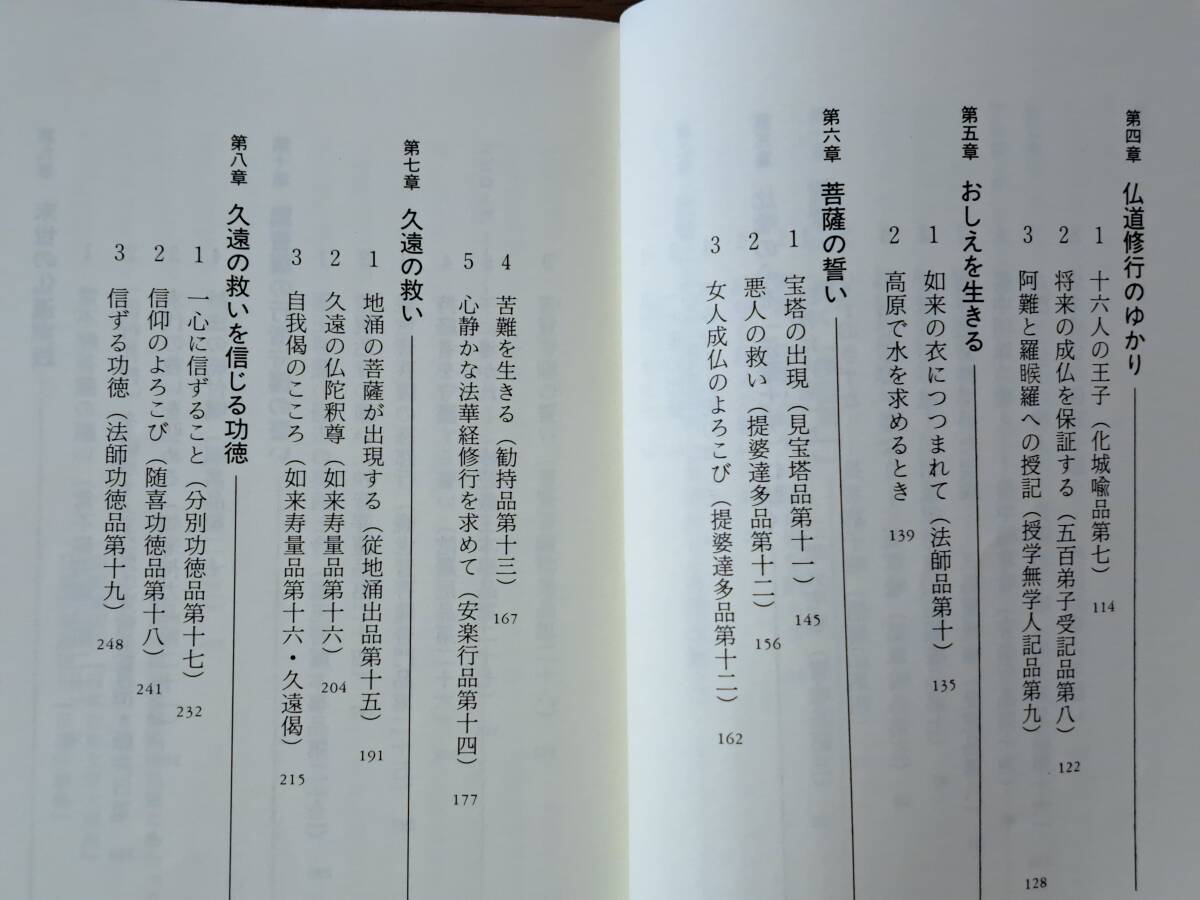 第四章 仏道修行のゆかり
1 十六人の王子（化城喩品第七） 114
2 将来の成仏を保証する（五百弟子受記品第八） 122
3 阿難と羅睺羅への授記（授学無学人記品第九） 128
第五章 おしえを生きる
1 如来の衣につつまれて（法師品第十） 135
2 高原で水を求めるとき 139
第六章 菩薩の誓い
1 宝塔の出現（見宝塔品第十一） 145
2 悪人の救い（提婆達多品第十二） 156
3 女人成仏のよろこび（提婆達多品第十二） 162
4 苦難を生きる（勧持品第十三） 167
5 心静かな法華経修行を求めて（安楽行品第十四） 177
第七章 久遠の救い
1 地涌の菩薩が出現する（従地涌出品第十五） 191
2 久遠の仏陀釈尊（如来寿量品第十六） 204
3 自我偈のこころ（如来寿量品第十六・久遠偈） 215
第八章 久遠の救いを信じる功徳
1 一心に信ずること（分別功徳品第十七） 232
2 信仰のよろこび（随喜功徳品第十八） 241
3 信ずる功徳（法師功徳品第十九） 248